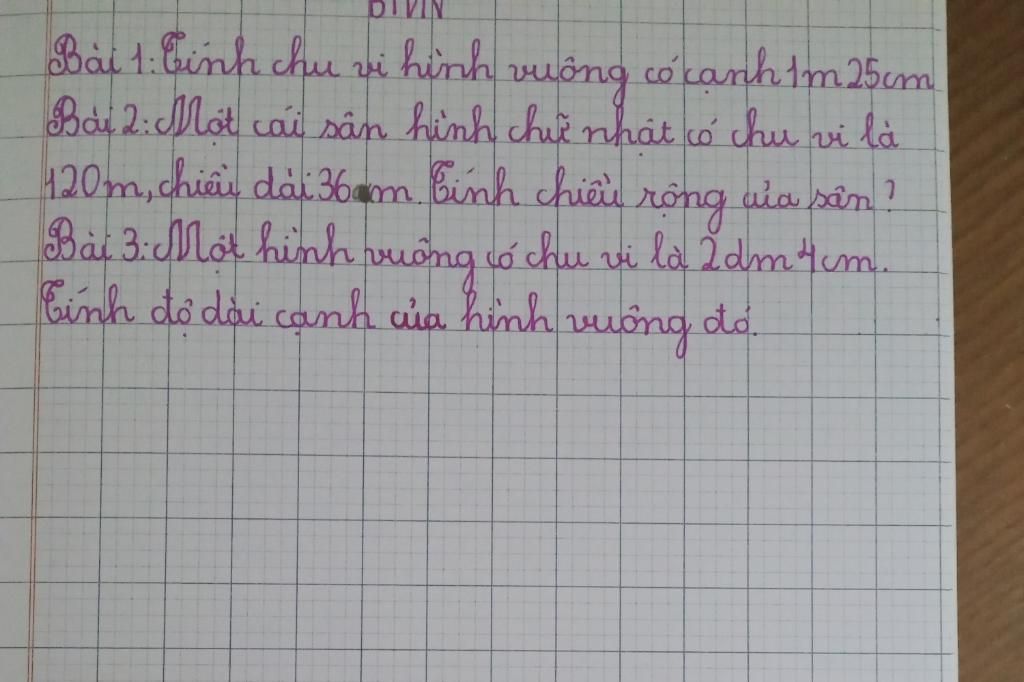 BTVN
Bài 1: Tính chu vi hình vuông có cạnh 1m 25cm
Bài 2: Một cái sân hình chữ nhật có chu vi là
120m, chiều dài 36 m. Tính chiều rộng của sân?
Bài 3: Một hình vuông có chu vi là 2dm 4cm.
Tính độ dài cạnh của hình vuông đó.